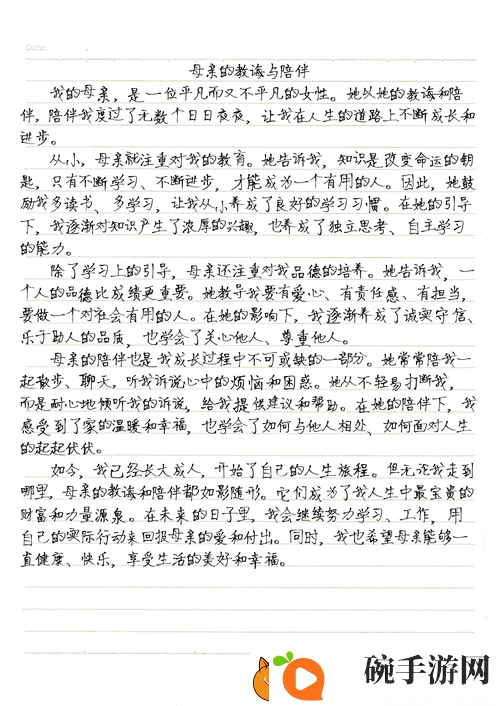 Date.
母亲的教诲与陪伴
我的母亲，是一位平凡而又不平凡的女性。她以她的教诲和陪
伴，陪伴我度过了无数个日日夜夜，让我在人生的道路上不断成长和
进步。
从小，母亲就注重对我的教育。她告诉我，知识是改变命运的钥
匙，只有不断学习、不断进步，才能成为一个有用的人。因此，她鼓
励我多读书、多学习，让我从小养成了良好的学习习惯。在她的引导
下，我逐渐对知识产生了浓厚的兴趣，也养成了独立思考、自主学习
的能力。
除了学习上的引导，母亲还注重对我品德的培养。她告诉我，一
个人的品德比成绩更重要。她教导我要有爱心、有责任感、有担当，
要做一个对社会有用的人。在她的影响下，我逐渐养成了诚实守信、
乐于助人的品质，也学会了关心他人、尊重他人。
母亲的陪伴也是我成长过程中不可或缺的一部分。她常常陪我一
起散步、聊天，听我诉说心中的烦恼和困惑。她从不轻易打断我，
而是耐心地倾听我的诉说，给我提供建议和帮助。在她的陪伴下，我
感受到了家的温暖和幸福，也学会了如何与他人相处、如何面对人生
的起起伏伏。
如今，我已经长大成人，开始了自己的人生旅程。但无论我走到
哪里，母亲的教诲和陪伴都如影随形。它们成为了我人生中最宝贵的
财富和力量源泉。在未来的日子里，我会继续努力学习、工作，用
自己的实际行动来回报母亲的爱和付出。同时，我也希望母亲能够一
直健康、快乐，享受生活的美好和幸福。
碗手游网